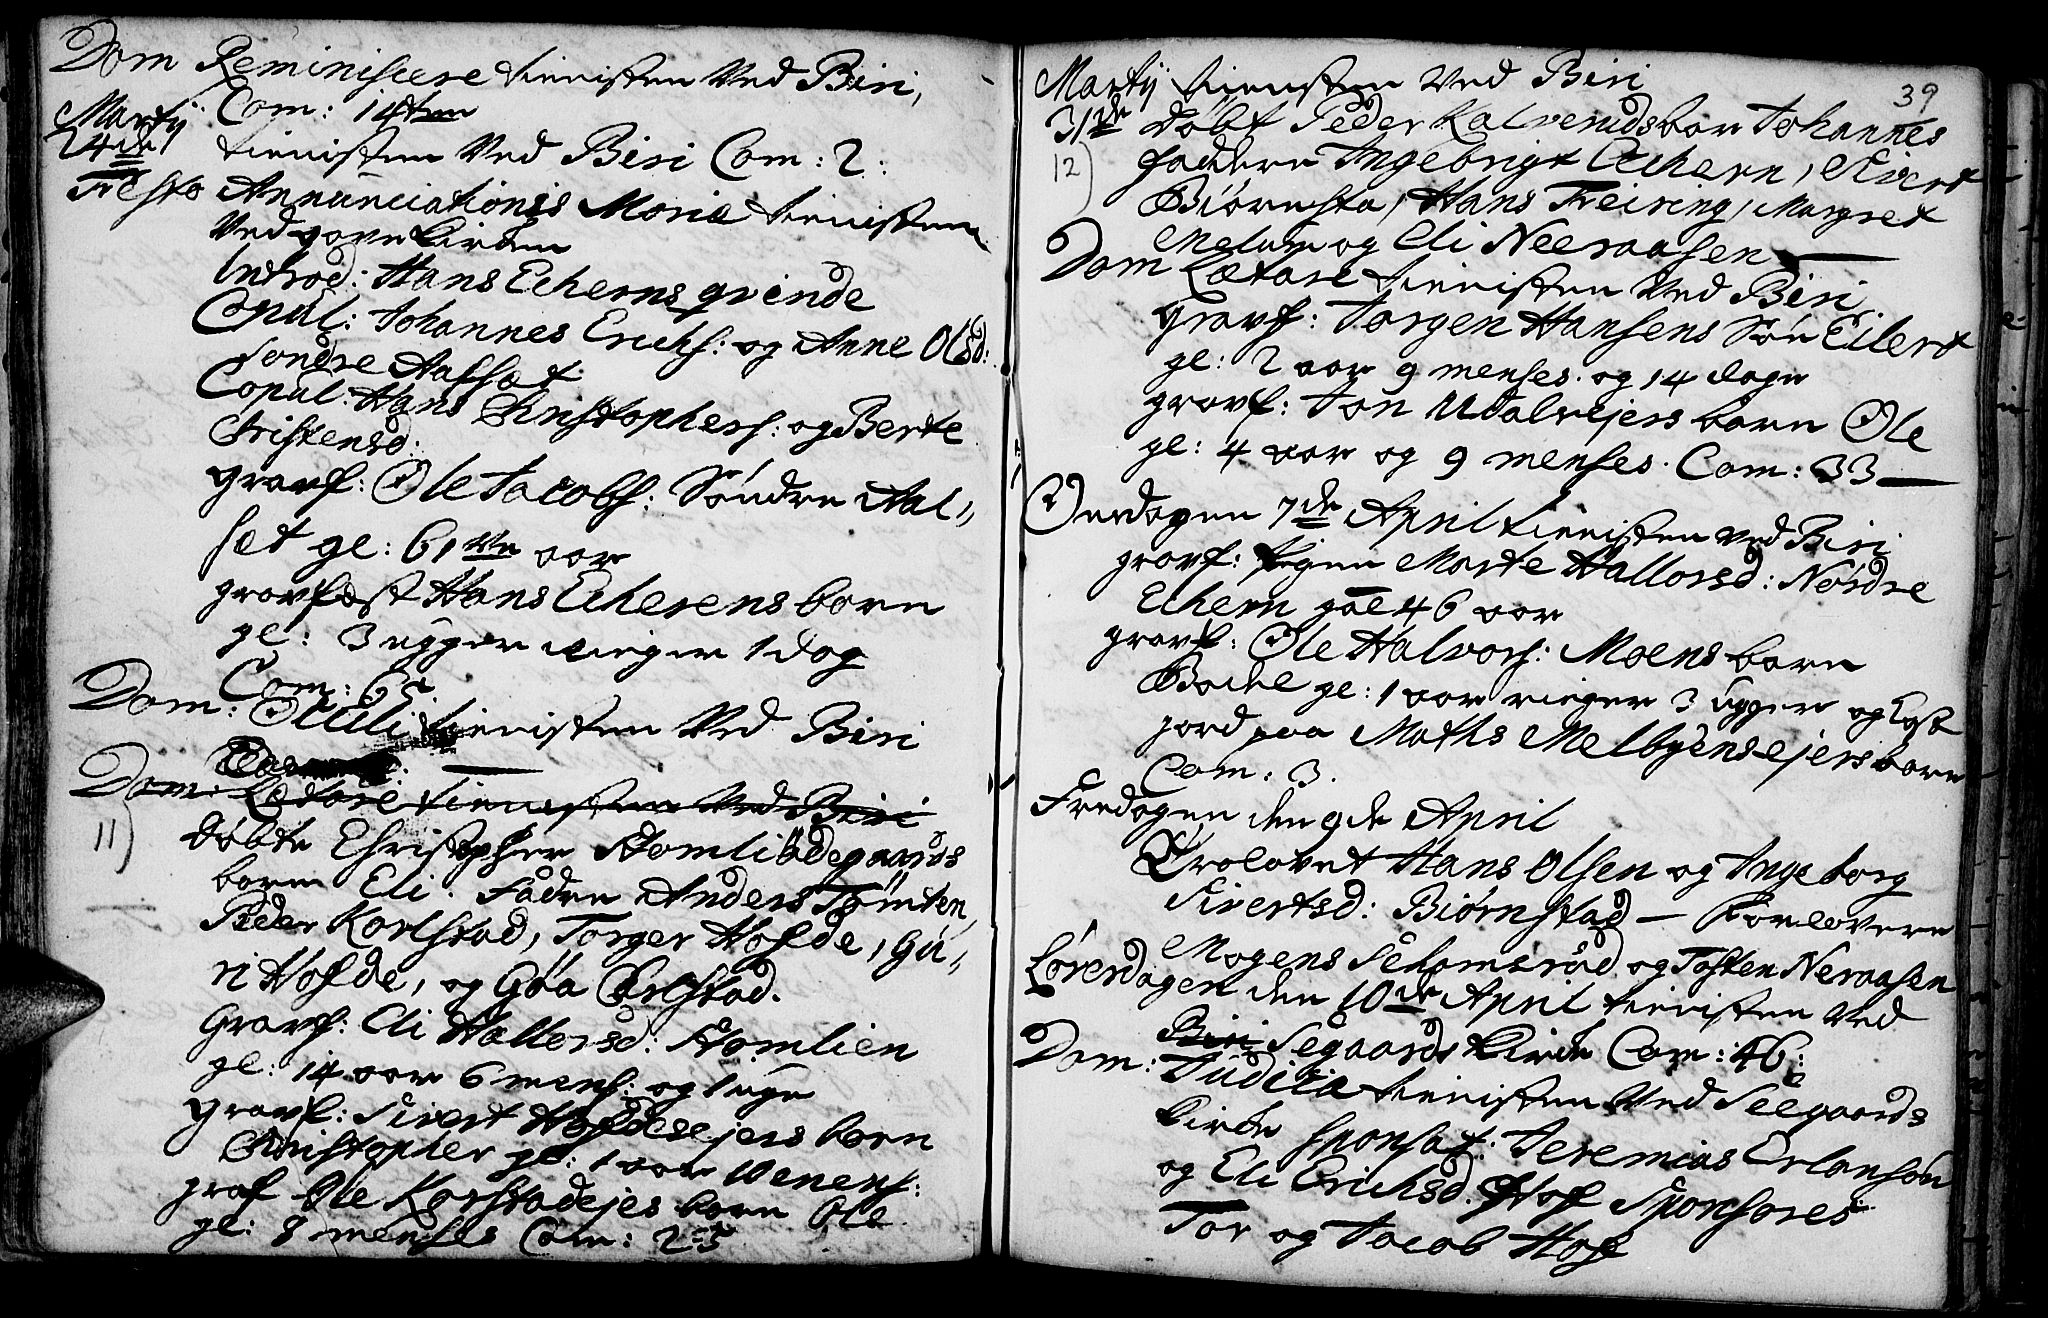 Dom Reminiscere tienisten Ved Biri,
Com: 14ten
Martij
24de tienisten Ved Biri Com: 2:
Festo Annunciationis Mariæ tienisten
Ved Kirken
Introd: Hans Echerns qvinde
Copul: Johannes Erichs: og Anne Olsd:
Søndre Aalset
Copul: Hans Christophers: og Berte
Christensd:
gravf: Ole Jacobs: Søndre Aal=
set gl: 61 aar
gravfæst Hans Echerens barn
gl: 3 uger ringer 1 dag
Com: 65.
Dom: Oculi tienisten Ved Biri
Dom: Lætare tienisten Ved Biri
11) døbte Christopher Stomliødegaards
barn Eli. Fadre Anders Tømten,
Peder Karlstad, Torger Hofde, Gu=
ri Hofde, og Gøa Carlstad.
Gravf: Eli Hallorsd: Stomlien
gl: 14 aar 6 mens: og 1 uge
gravf: Sivert Hofdesejers barn
Christopher gl: 1 aar
graf Ole Karstadejes barn Ole
gl: 8 menses Com: 25
39
Martij tienisten Ved Biri
31de døbt Peder Kalverudsbarn Johannes
12) faddere Ingebrigt Echern, Sivert
Biørnsta, Hans Freiring, Margret
Melum og Eli Neeraasen
Dom Lætare tienisten Ved Biri
gravf: Jørgen Hansens Søn Eilert
gl: 2 aar 9 menses. og 14 dage
gravf: Jon Udalsejers barn Ole
gl: 4 aar og 9 menses. Com: 33
Onsdagen 7de April tienisten Ved Biri
gravf: Pigen Marte Hallorsd: Nordre
Echern gl 46 aar
gravf: Ole Halvors: Moens barn
Bodel gl: 1 aar ringer 3 uger og kast
jord paa Maths Melbyensejers barn
Com: 3.
Fredagen den 9de April
Trolovet Hans Olsen og Ingeborg
Sivertsd: Biørnstad — Forlovere
Mogens Schomsrud og Tosten Neraasen
Løverdagen den 10de April tienisten Ved
Biri Segaards Kirke Com: 46:
Dom: Judica tienisten Ved Seegaards
Kirke Sponsat: Jeremias Erlansøn
og Eli Erichsd. Hof Sponsores
Tor og Jacob Hof